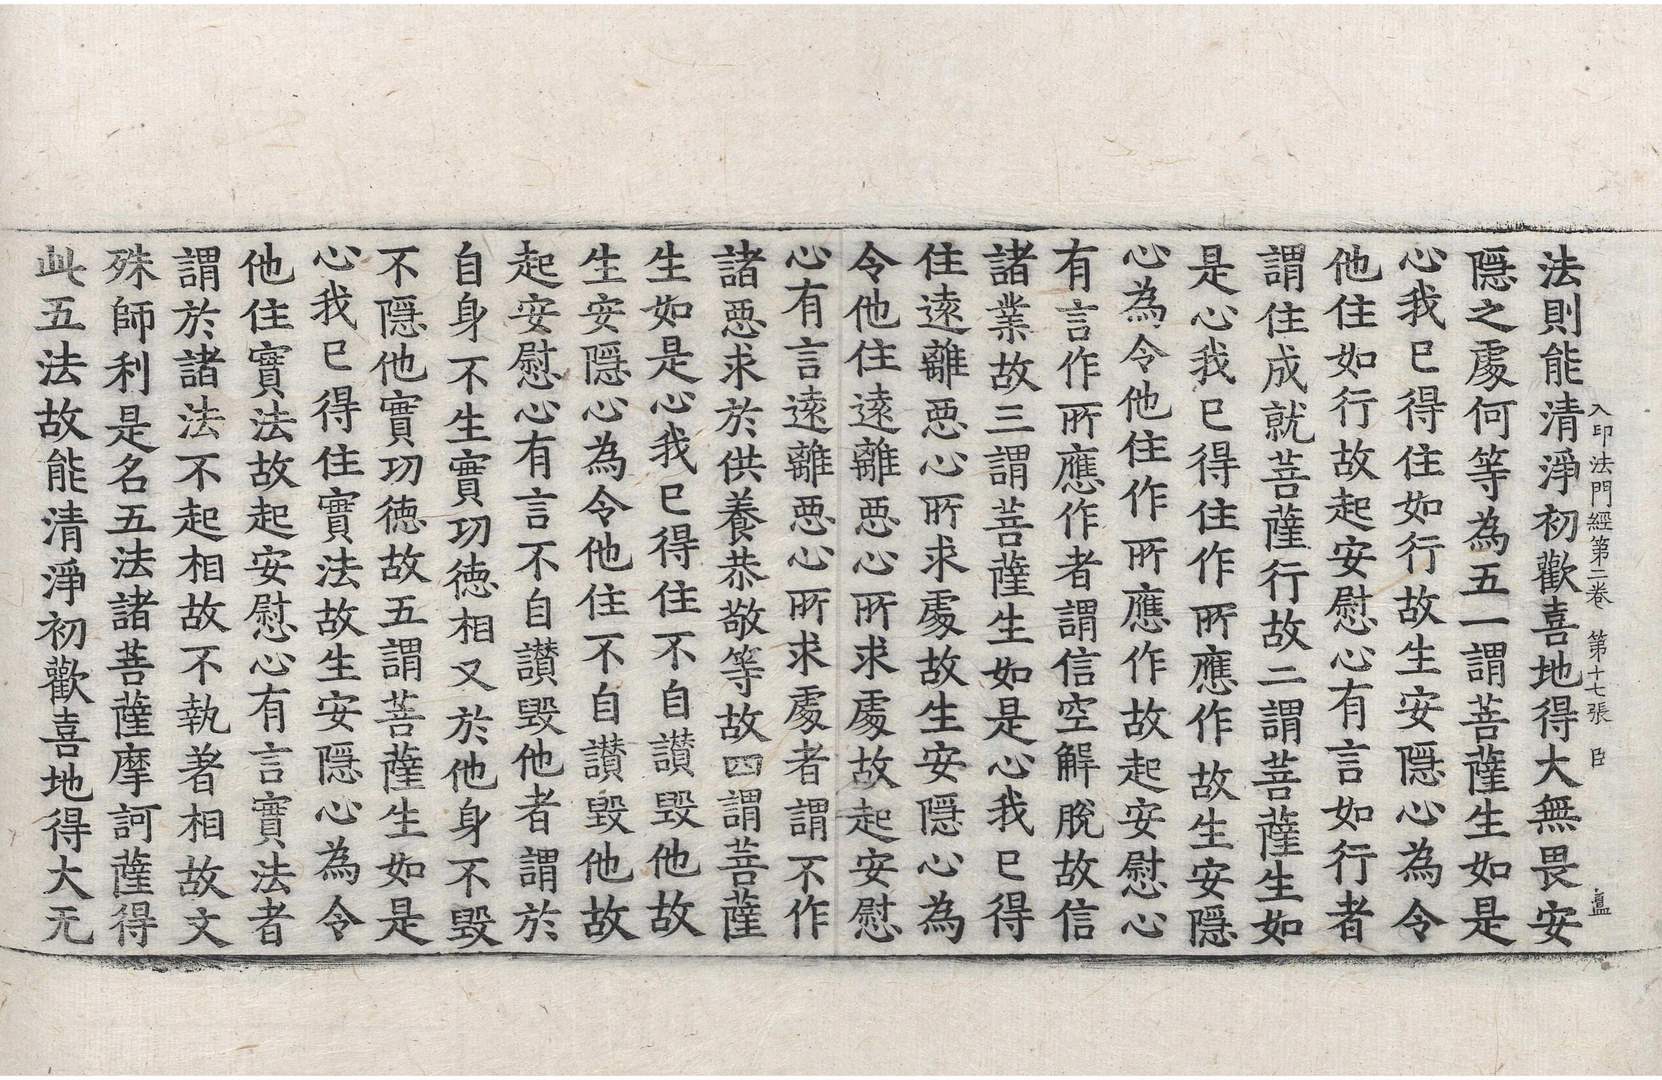 法則能清淨初歡喜地得大無畏安
入印法門經第二卷　第十七張　臣
隱之處何等為五一謂菩薩生如是
心我已得住如行故生安隱心為令
他住如行故起安慰心有言如行者
謂住成就菩薩行故二謂菩薩生如
是心我已得住作所應作故生安隱
心為令他住作所應作故起安慰心
有言作所應作者謂信空解脫故信
諸業故三謂菩薩生如是心我已得
住遠離惡心所求處故生安隱心為
令他住遠離惡心所求處故起安慰
心有言遠離惡心所求處者謂不作
諸惡求於供養恭敬等故四謂菩薩
生如是心我已得住不自讃毀他故
生安隱心為令他住不自讃毀他故
起安慰心有言不自讃毀他者謂於
自身不生實功德相又於他身不毀
不隱他實功德故五謂菩薩生如是
心我已得住實法故生安隱心為令
他住實法故起安慰心有言實法者
謂於諸法不起相故不執著相故文
殊師利是名五法諸菩薩摩訶薩得
此五法故能清淨初歡喜地得大无